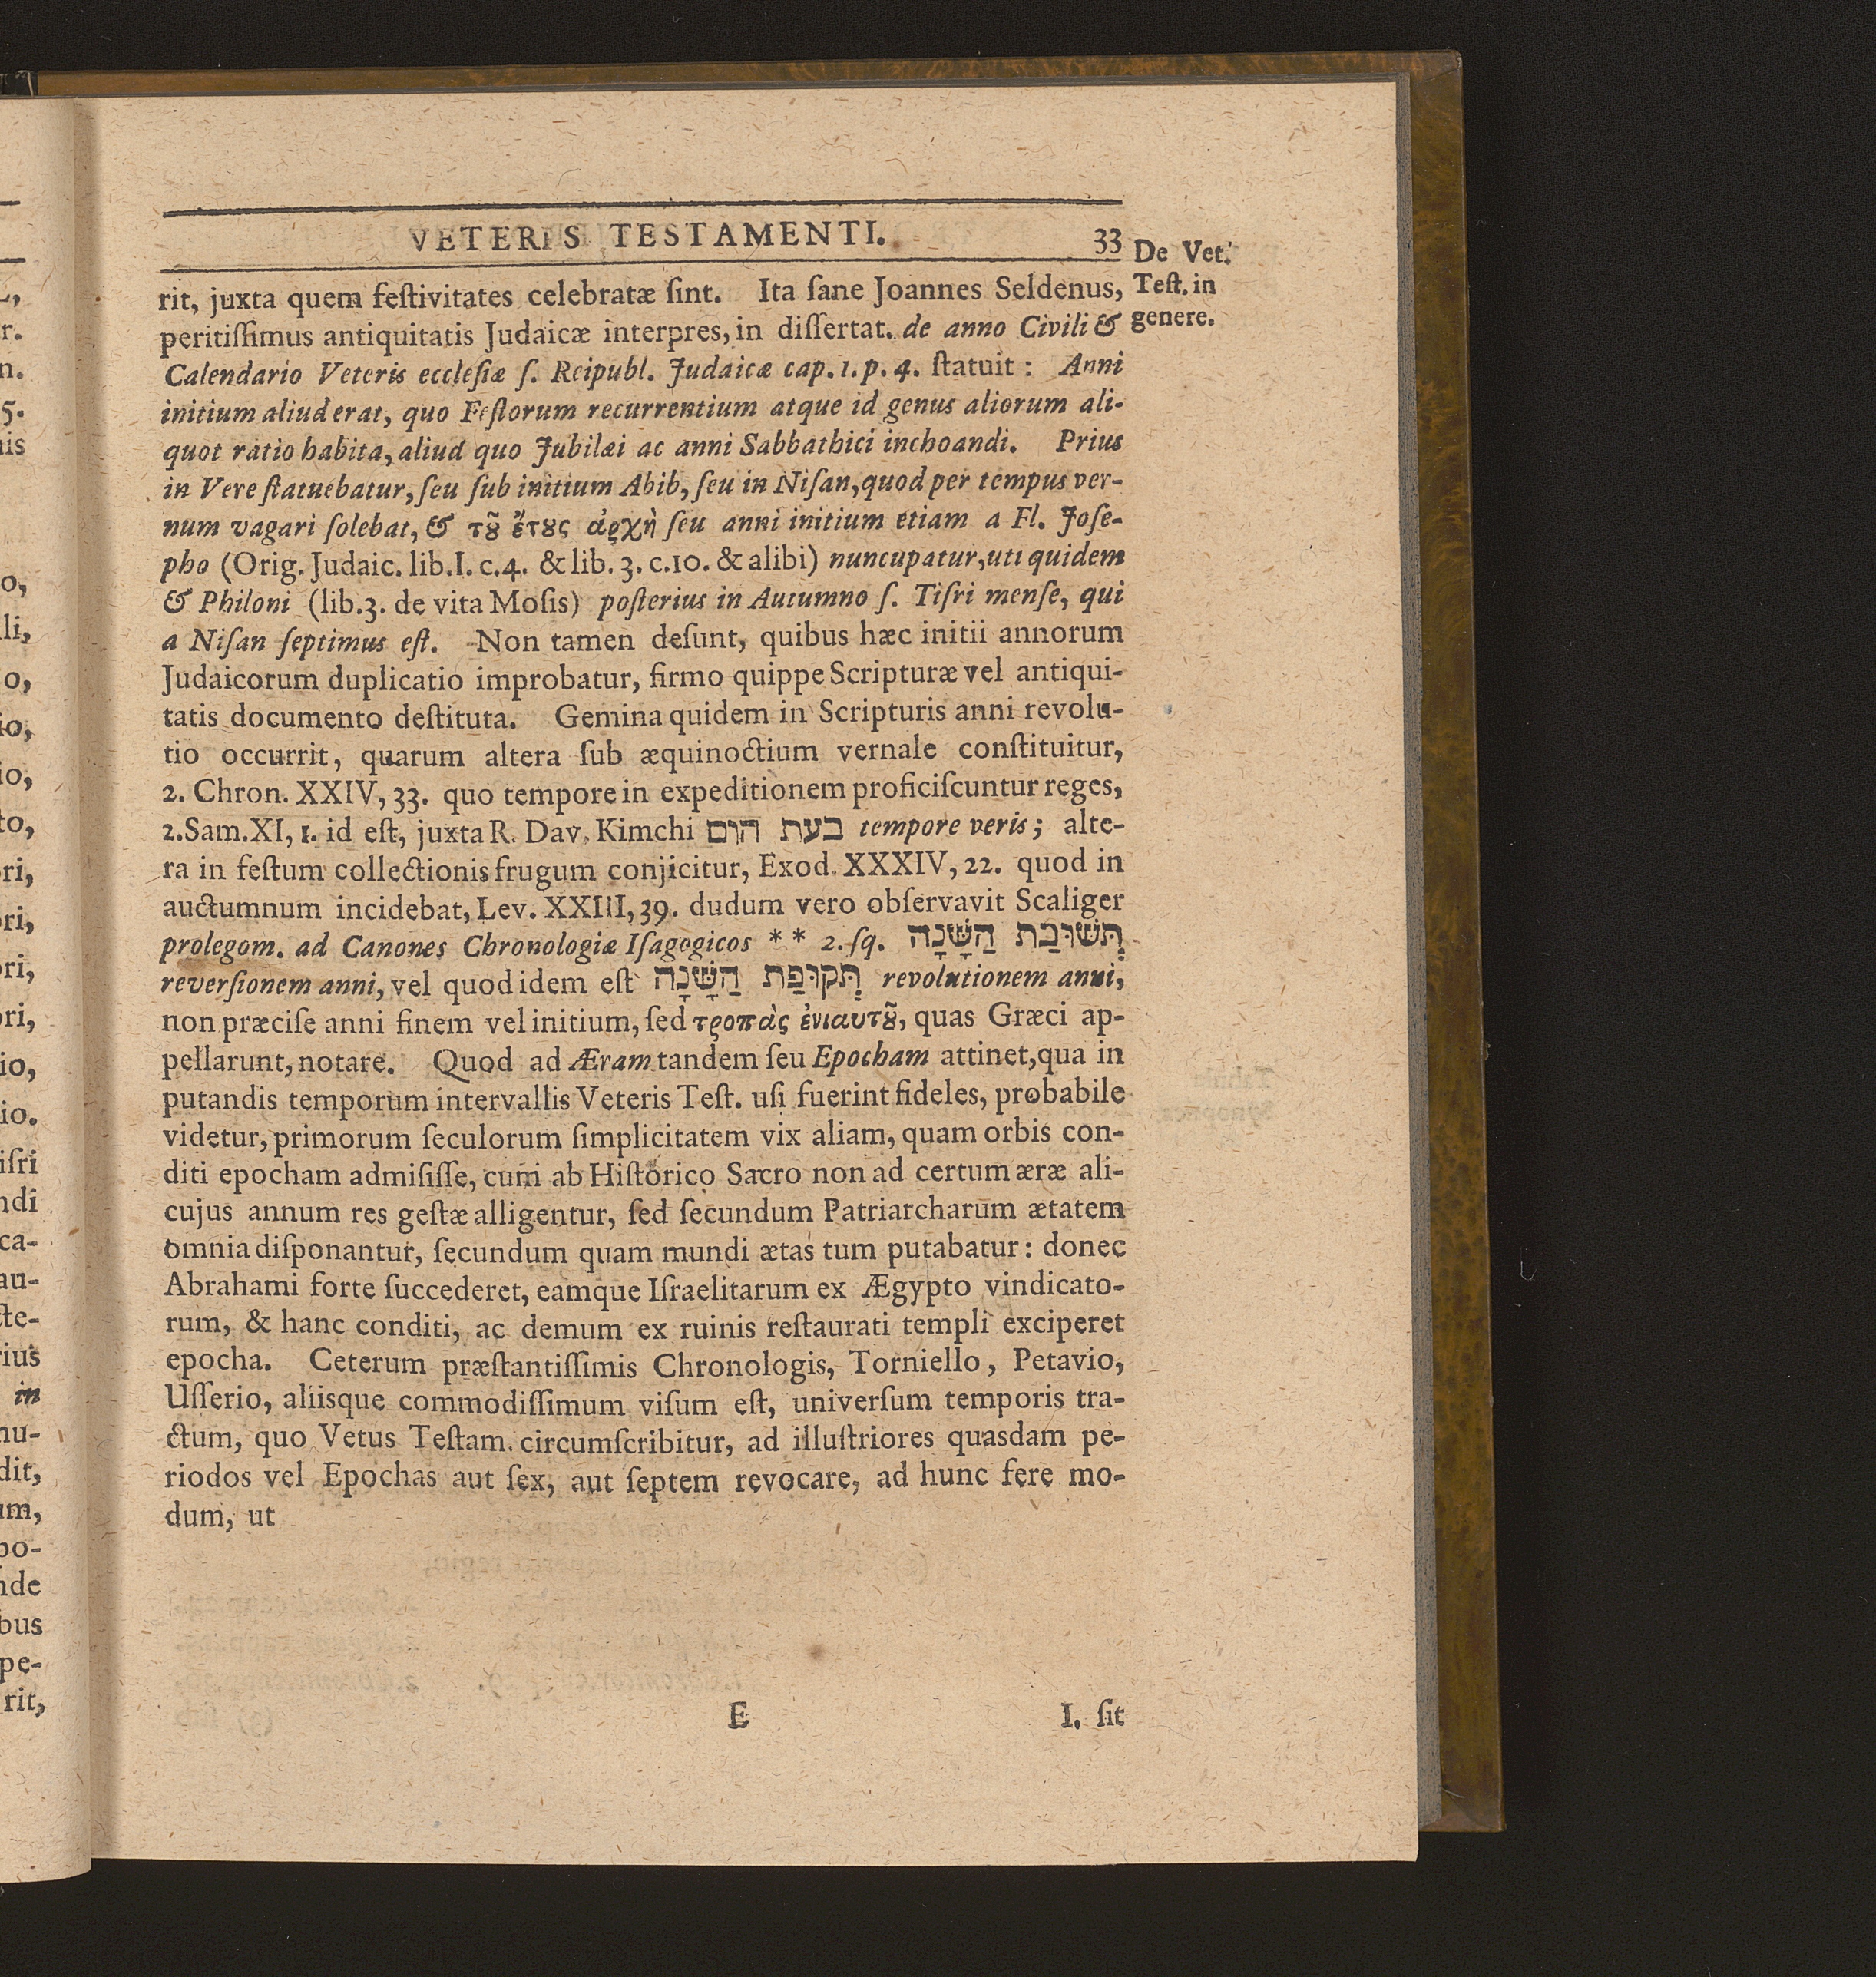 VETERIS TESTAMENTI. 33
De Vet.
Test. in
genere.
rit, juxta quem feſtivitates celebratæ ſint. Ita ſane Joannes Seldenus,
peritiſſimus antiquitatis Judaicæ interpres, in diſſertat. de anno Civili &
Calendario Veteris eccleſiæ ſ. Reipubl. Judaicæ cap. 1. p. 4. ſtatuit: Anni
initium aliud erat, quo Feſtorum recurrentium atque id genus aliorum ali-
quot ratio habita, aliud quo Jubilæi ac anni Sabbathici inchoandi. Prius
in Vere ſtatuebatur, ſeu ſub initium Abib, ſeu in Niſan, quod per tempus ver-
num vagari ſolebat, & τȣ͂ ἔτȣς ἀρχὴ ſeu anni initium etiam a Fl. Joſe-
pho (Orig. Judaic. lib. I. c. 4. & lib. 3. c. 10. & alibi) nuncupatur, uti quidem
& Philoni (lib. 3. de vita Moſis) poſterius in Autumno ſ. Tiſri menſe, qui
a Niſan ſeptimus eſt. Non tamen deſunt, quibus hæc initii annorum
Judaicorum duplicatio improbatur, firmo quippe Scripturæ vel antiqui-
tatis documento deſtituta. Gemina quidem in Scripturis anni revolu-
tio occurrit, quarum altera ſub æquinoctium vernale conſtituitur,
2. Chron. XXIV, 33. quo tempore in expeditionem proficiſcuntur reges,
2. Sam. XI, 1. id eſt, juxta R. Dav. Kimchi בעת הום tempore veris; alte-
ra in feſtum collectionis frugum conjicitur, Exod. XXXIV, 22. quod in
auctumnum incidebat, Lev. XXIII, 39. dudum vero obſervavit Scaliger
prolegom. ad Canones Chronologiæ Iſagogicos * * 2. ſq. תְּשׁוּבַת הַשָּׁנָה
reverſionem anni, vel quod idem eſt תְּקוּפַת הַשָּׁנָה revolutionem anni,
non præciſe anni finem vel initium, ſed τροπὰς ἐνιαυτȣ͂, quas Græci ap-
pellarunt, notare. Quod ad Æram tandem ſeu Epocham attinet, qua in
putandis temporum intervallis Veteris Teſt. uſi fuerint fideles, probabile
videtur, primorum ſeculorum ſimplicitatem vix aliam, quam orbis con-
diti epocham admiſiſſe, cum ab Hiſtorico Sacro non ad certum æræ ali-
cujus annum res geſtæ alligentur, ſed ſecundum Patriarcharum ætatem
omnia diſponantur, ſecundum quam mundi ætas tum putabatur: donec
Abrahami forte ſuccederet, eamque Iſraelitarum ex Ægypto vindicato-
rum, & hanc conditi, ac demum ex ruinis reſtaurati templi exciperet
epocha. Ceterum præſtantiſſimis Chronologis, Torniello, Petavio,
Uſſerio, aliisque commodiſſimum viſum eſt, univerſum temporis tra-
ctum, quo Vetus Teſtam. circumſcribitur, ad illuſtriores quasdam pe-
riodos vel Epochas aut ſex, aut ſeptem revocare, ad hunc fere mo-
dum, ut
E I. ſit